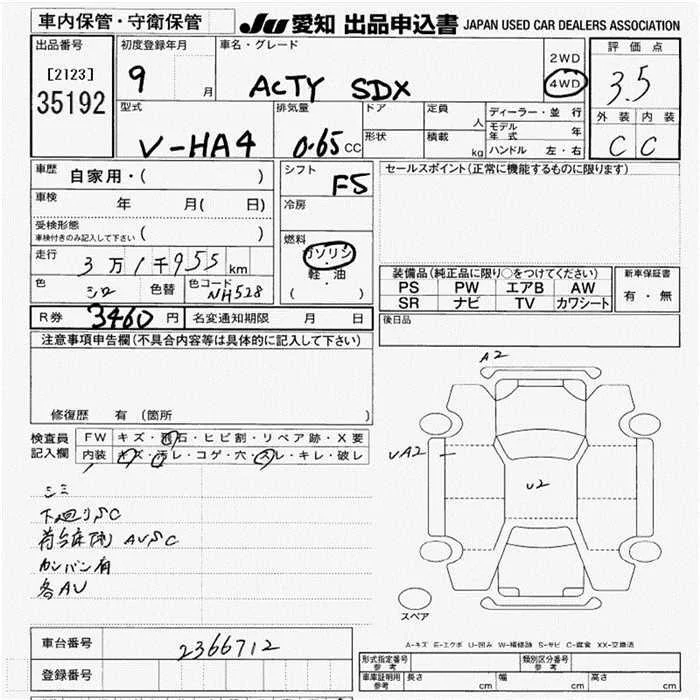 車内保管・守衛保管
JU 愛知 出品申込書 JAPAN USED CAR DEALERS ASSOCIATION
出品番号
[2123]
35192
初度登録年月
9 月
車名・グレード
ACTY SDX
2WD
4WD
評価点
3.5
外装 内装
C C
型式
V-HA4
排気量
0.65 CC
ドア
形状
定員 人
積載 kg
ディーラー・並行
モデル年式 年
ハンドル 左・右
車歴 自家用・( )
車検 年 月( 日)
受検形態
車検付きのみ記入して下さい ( )
走行 3万1千955 km
色 シロ 色替 色コード NH528
シフト F5
冷房
燃料
ガソリン
・
軽油
( )
セールスポイント(正常に機能するものに限ります)
装備品(純正品に限り○をつけてください)
PS PW エアB AW
SR ナビ TV カワシート
新車保証書
有・無
R券 3460 円 名変通知期限 月 日
後日品
注意事項申告欄(不具合内容等は具体的に記入して下さい)
修復歴 有 (箇所 )
検査員
記入欄
FW キズ・飛石・ヒビ割・リペア跡・X要
内装 キズ・汚レ・コゲ・穴・スレ・キレ・破レ
シミ
下廻りSC
荷台床側 AUSC
カンバン有
各AU
A2
UA2
U2
スペア
A-キズ E-エクボ U-凹み W-補修跡 S-サビ C-腐食 XX-交換済
車台番号 2366712
登録番号
形式指定番号
参考
類別区分番号
参考
車庫証明用
参考
長さ cm 幅 cm 高さ cm